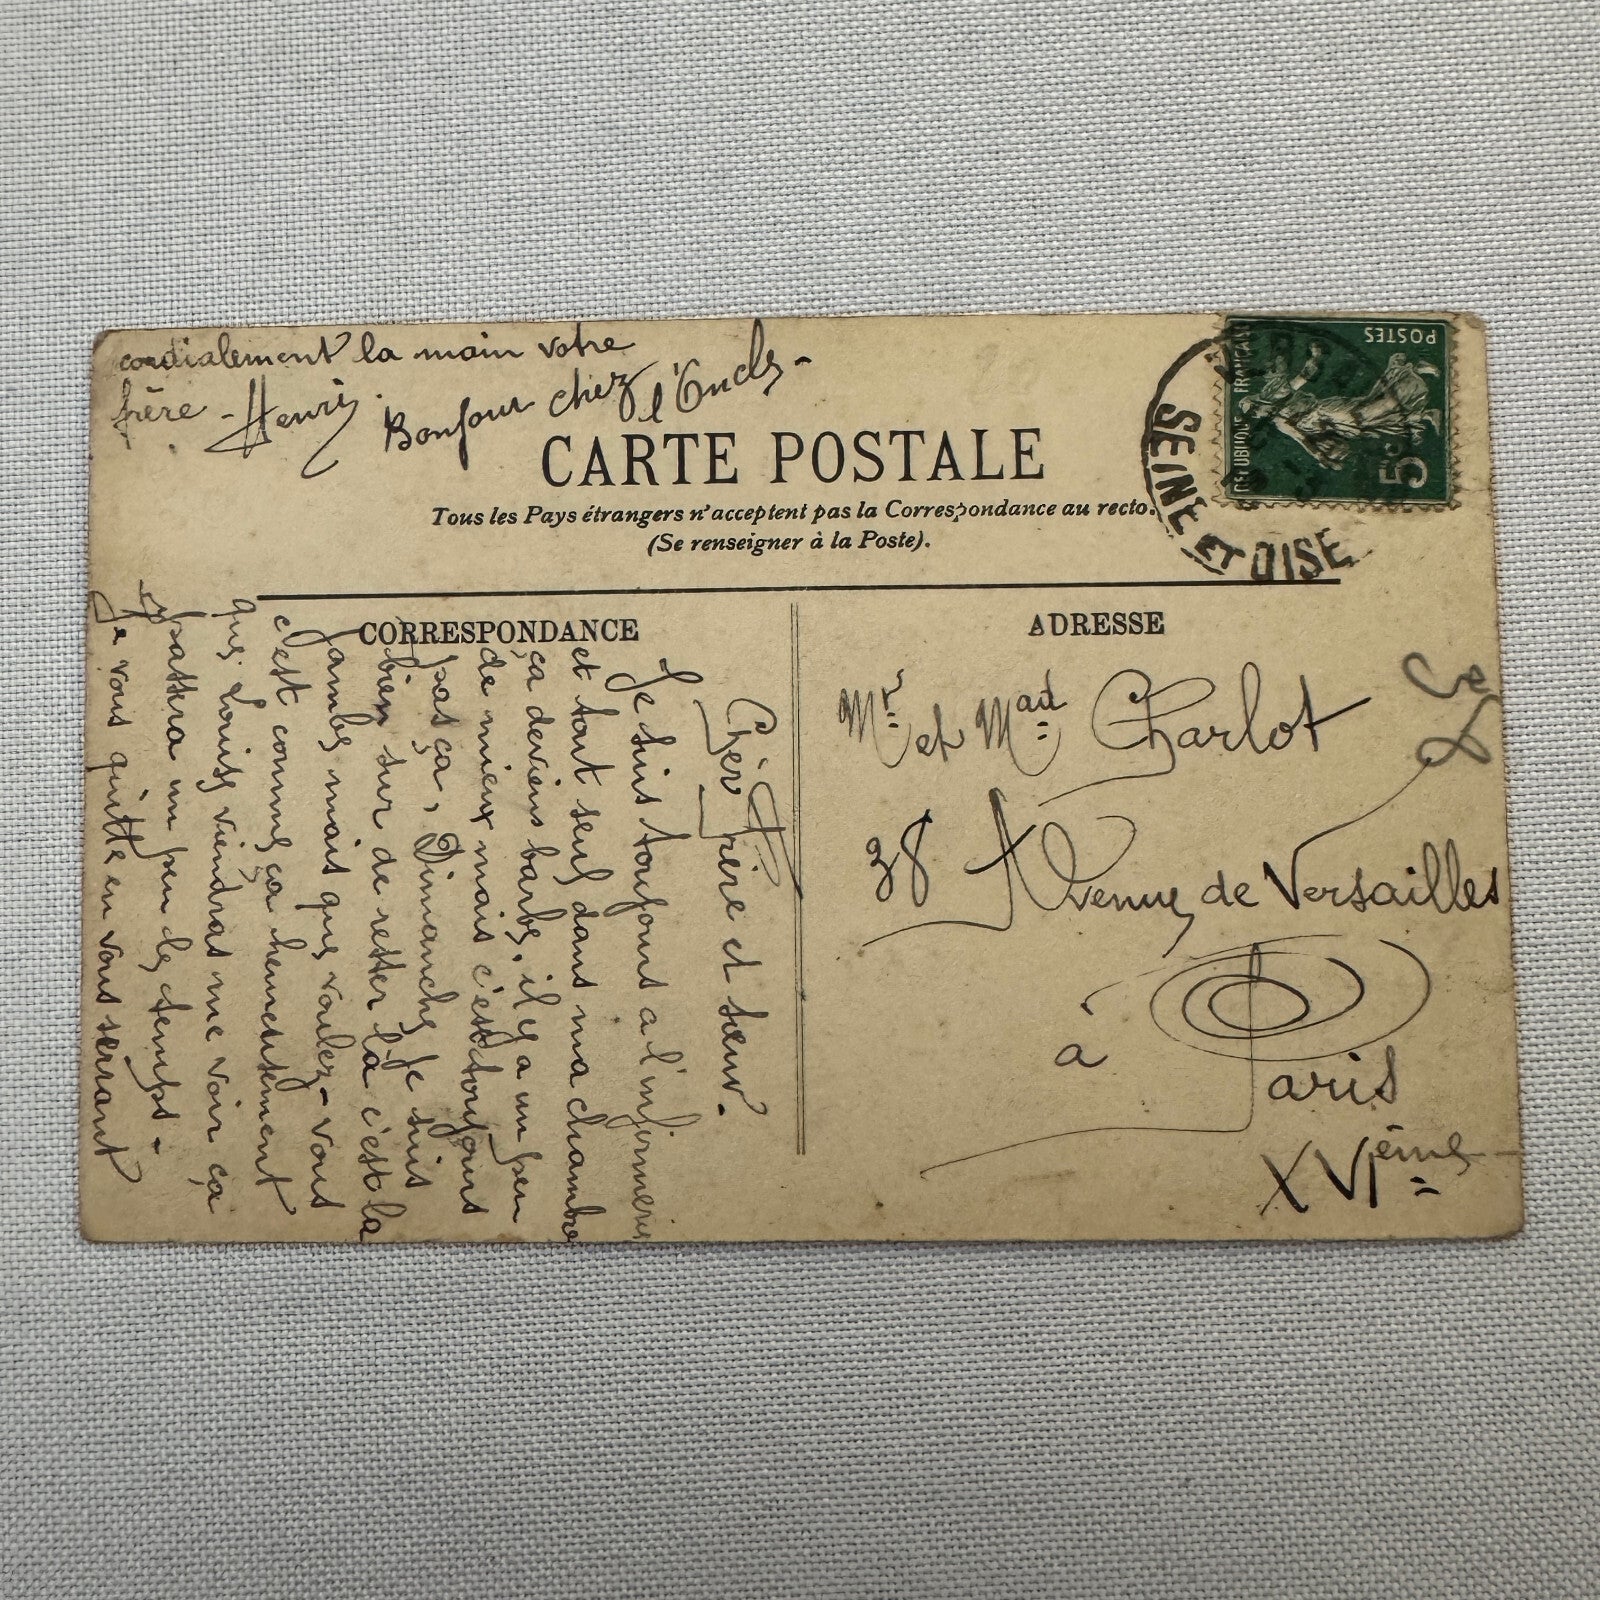 CARTE POSTALE
Tous les Pays étrangers n'acceptent pas la Correspondance au recto.
(Se renseigner à la Poste).
CORRESPONDANCE
Cher frère et sœur.
Je suis toujours a l'infirmerie
et tout seul dans ma chambre
ça deviens barbe, il y a un peu
de mieux mais c'est toujours
pas ça, Dimanche je suis
bien sur de rester là c'est la
jambe mais que voulez-vous
c'est comme ça heureusement
que Louise viendras me voir ça
passera un peu de temps-
Je vous quitte en vous serrant
cordialement la main votre
frère - Henri.
Bonjour chez l'Oncle-
ADRESSE
Mr et Mad Charlot
38 Avenue de Versailles
a Paris
XVIème
POSTES
5c
SEINE ET OISE